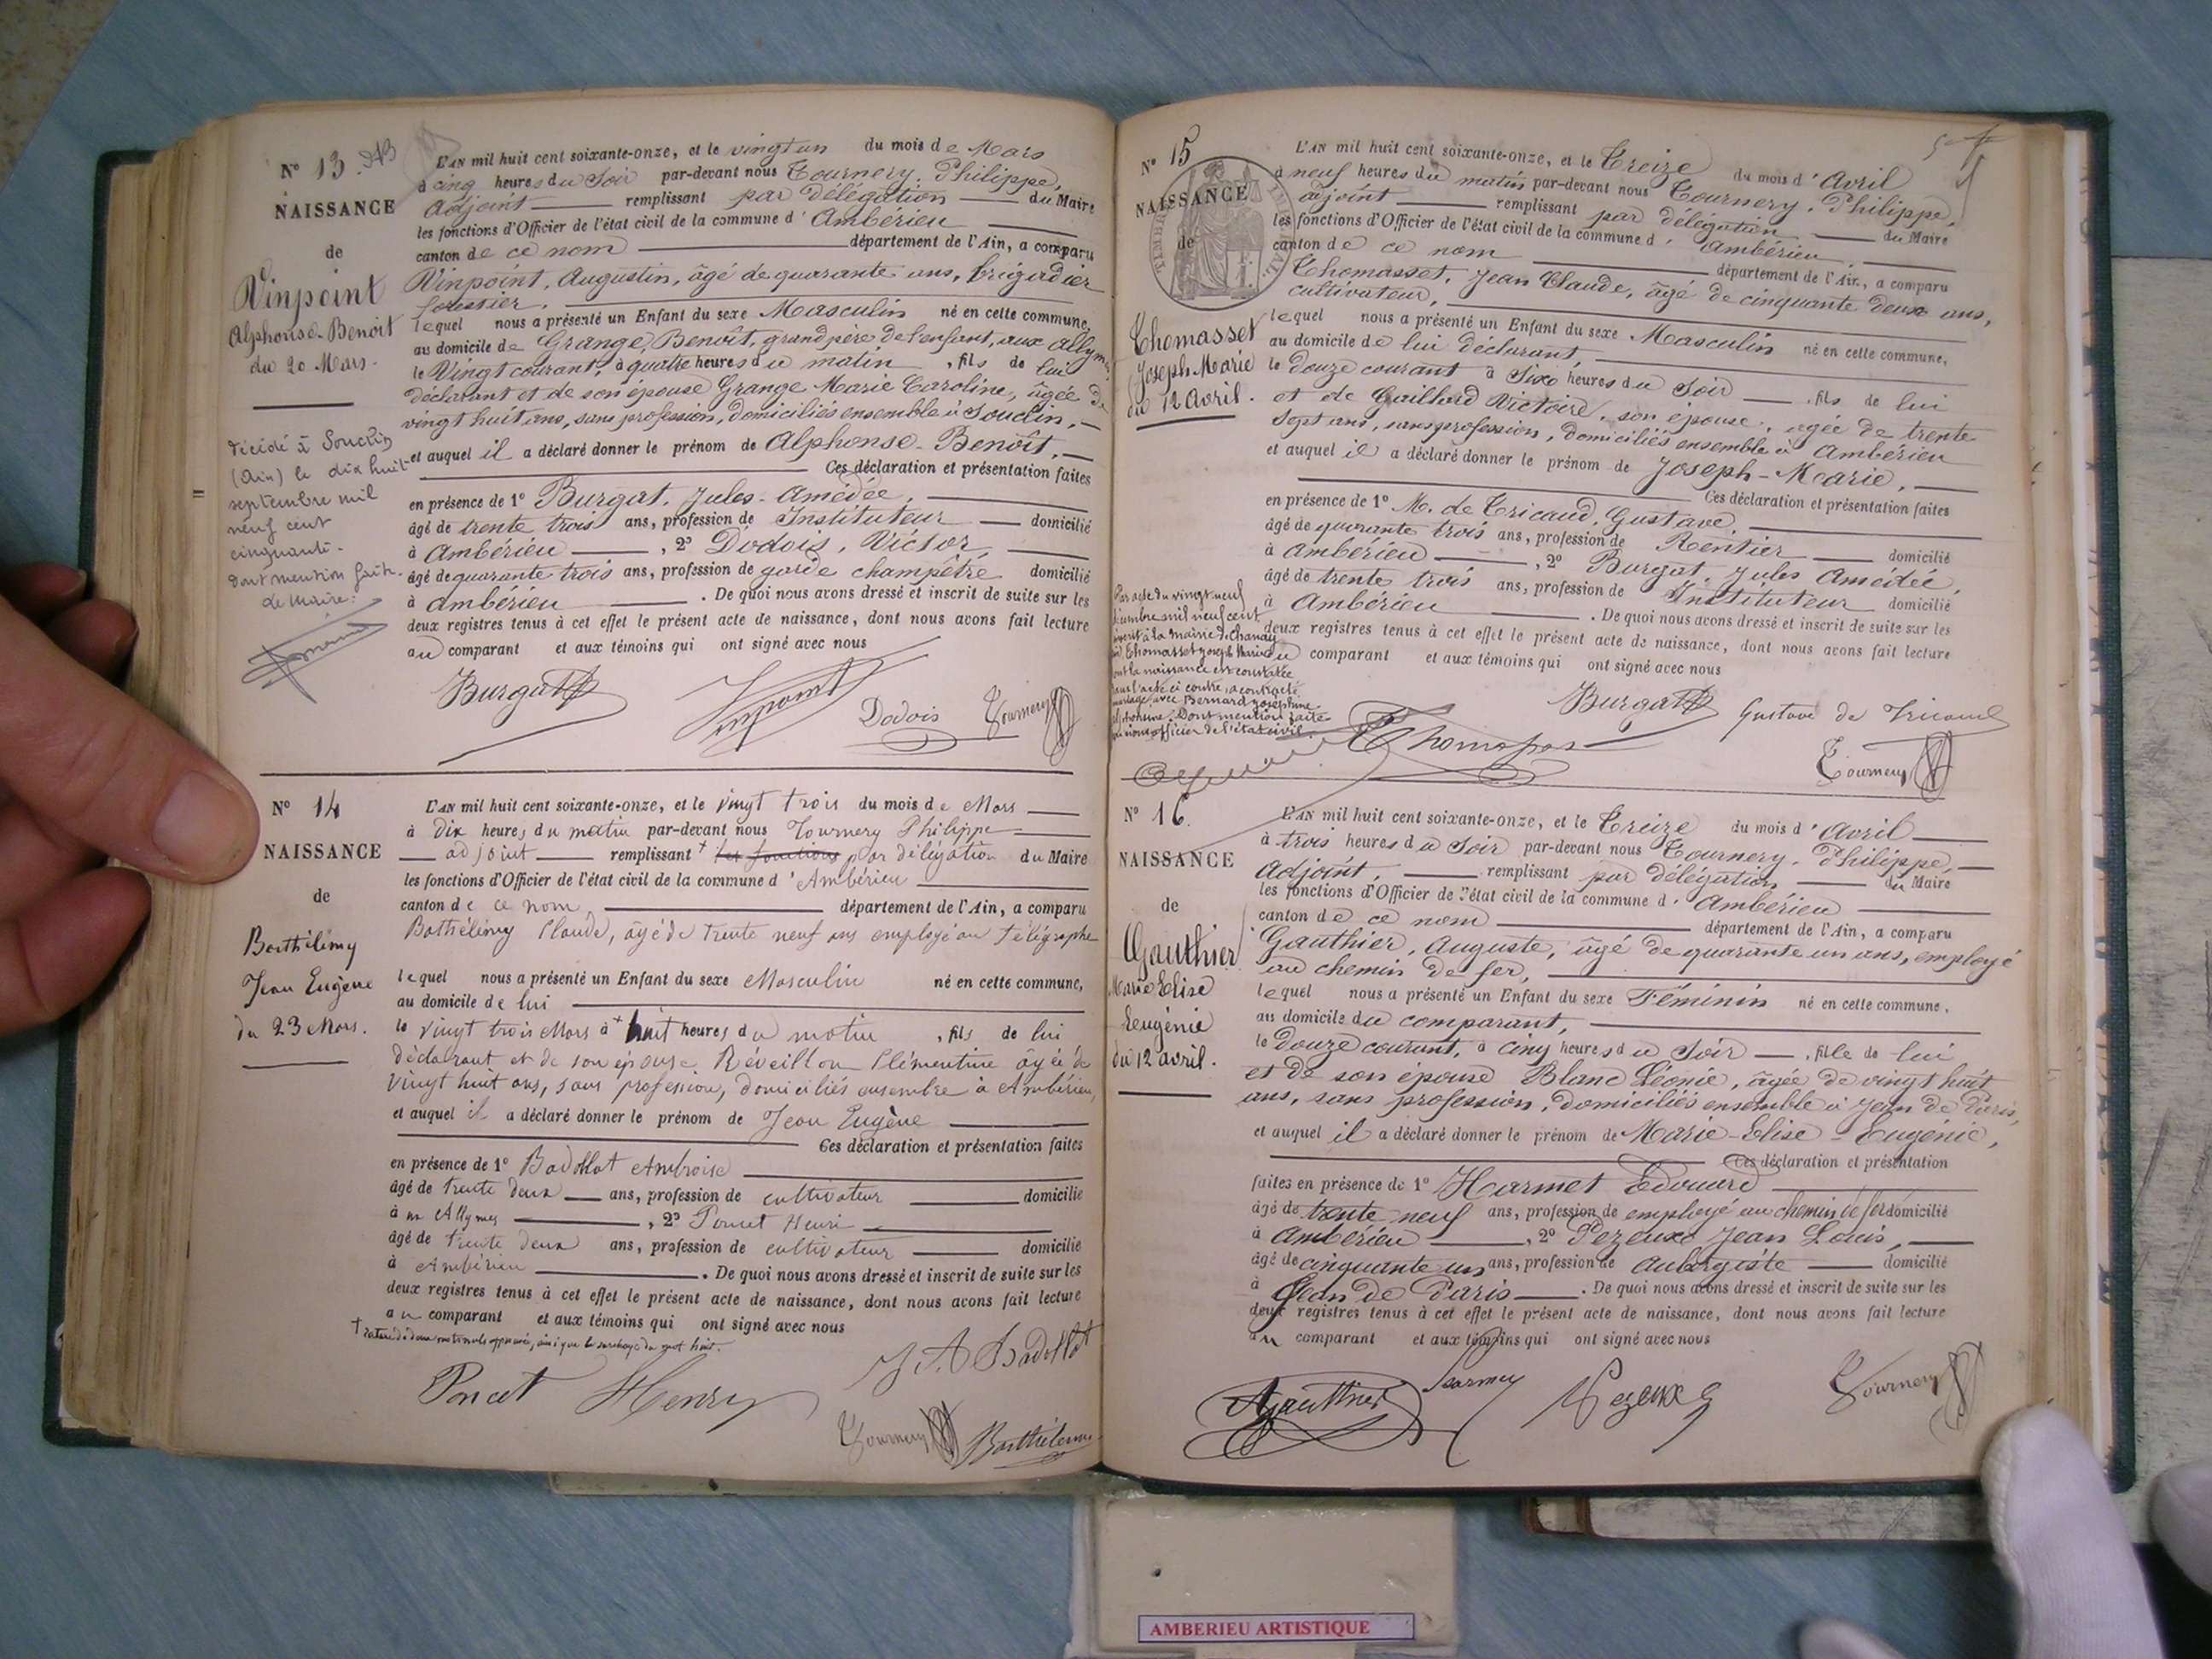 N° 13.
NAISSANCE
de
Vinpoint
Alphonse-Benoit
du 20 Mars.
décédé à Souclin
(Ain) le dix huit
septembre mil
neuf cent
cinquante.
dont mention faite.
Le Maire:
L'AN mil huit cent soixante-onze, et le vingt un du mois de Mars
à cinq heures du Soir par-devant nous Tournery, Philippe,
Adjoint remplissant par délégation du Maire
les fonctions d'Officier de l'état civil de la commune d'Ambérieu
canton de ce nom département de l'Ain, a comparu
Vinpoint, Augustin, âgé de quarante ans, brigadier
forestier,
lequel nous a présenté un Enfant du sexe Masculin né en cette commune,
au domicile de Grange, Benoît, grand père de l'enfant, aux allymes
le Vingt courant, à quatre heures du matin, fils de lui
déclarant et de son épouse Grange Marie Caroline, âgée de
vingt huit ans, sans profession, domiciliés ensemble à Souclin,
et auquel il a déclaré donner le prénom de Alphonse-Benoît,
Ces déclaration et présentation faites
en présence de 1° Burgat, Jules-Amédée,
âgé de trente trois ans, profession de Instituteur domicilié
à Ambérieu, 2° Dodois, Victor,
âgé de quarante trois ans, profession de garde champêtre domicilié
à ambérieu. De quoi nous avons dressé et inscrit de suite sur les
deux registres tenus à cet effet le présent acte de naissance, dont nous avons fait lecture
au comparant et aux témoins qui ont signé avec nous
Burgat Vinpoint Dodois Tournery
N° 14
NAISSANCE
de
Barthélémy
Jean Eugène
du 23 Mars.
L'AN mil huit cent soixante-onze, et le vingt trois du mois de Mars
à dix heures du matin par-devant nous Tournery Philippe
adjoint remplissant + les fonctions par délégation du Maire
les fonctions d'Officier de l'état civil de la commune d'Ambérieu
canton de ce nom département de l'Ain, a comparu
Bathélémy Claude, âgé de trente neuf ans employé au télégraphe
lequel nous a présenté un Enfant du sexe Masculin né en cette commune,
au domicile de lui
le vingt trois Mars à + huit heures du matin, fils de lui
déclarant et de son épouse Réveillon Clémentine âgée de
vingt huit ans, sans profession, domiciliés ensembre à Ambérieu,
et auquel il a déclaré donner le prénom de Jean Eugène
Ces déclaration et présentation faites
en présence de 1° Badollat Ambroise
âgé de trente deux ans, profession de cultivateur domicilié
à Allymes, 2° Poncet Henri
âgé de trente deux ans, profession de cultivateur domicilié
à Ambérieu. De quoi nous avons dressé et inscrit de suite sur les
deux registres tenus à cet effet le présent acte de naissance, dont nous avons fait lecture
au comparant et aux témoins qui ont signé avec nous
+ rature de deux mots nuls approuvée, ainsi que la surcharge du mot huit.
J A Badollat
Poncet Henry
Tournery Barthélemy
N° 15
NAISSANCE
de
Thomasset
Joseph Marie
du 12 Avril.
Par acte du vingt neuf
mil neuf cent
à la mairie de Chanay
Thomasset Joseph Marie
dont la naissance est constatée
dans l'acte ci contre, a contracté
mariage avec Bernard Joséphine
Dont mention faite
officier de l'état civil.
L'AN mil huit cent soixante-onze, et le Treize du mois d'Avril
à neuf heures du matin par-devant nous Tournery, Philippe,
adjoint remplissant par délégation du Maire
les fonctions d'Officier de l'état civil de la commune d'Ambérieu,
canton de ce nom département de l'Ain, a comparu
Thomasset, Jean Claude, âgé de cinquante deux ans,
cultivateur,
lequel nous a présenté un Enfant du sexe Masculin né en cette commune,
au domicile de lui déclarant,
le douze courant à Six heures du Soir, fils de lui
et de Gaillard Victoire, son épouse, agée de trente
sept ans, sans profession, domiciliés ensemble à Ambérieu
et auquel il a déclaré donner le prénom de Joseph-Marie,
Ces déclaration et présentation faites
en présence de 1° M. de Tricaud, Gustave,
âgé de quarante trois ans, profession de Rentier domicilié
à Ambérieu, 2° Burgat, Jules Amédée,
âgé de trente trois ans, profession de Instituteur domicilié
à Ambérieu. De quoi nous avons dressé et inscrit de suite sur les
deux registres tenus à cet effet le présent acte de naissance, dont nous avons fait lecture
au comparant et aux témoins qui ont signé avec nous
Burgat Gustave de Tricaud
Thomasset Tournery
N° 16.
NAISSANCE
de
Gauthier
Marie Elise
Eugénie
du 12 avril.
L'AN mil huit cent soixante-onze, et le Treize du mois d'Avril
à trois heures du Soir par-devant nous Tournery, Philippe,
Adjoint, remplissant par délégation du Maire
les fonctions d'Officier de l'état civil de la commune d'Ambérieu
canton de ce nom département de l'Ain, a comparu
Gauthier, Auguste, âgé de quarante un ans, employé
au chemin de fer,
lequel nous a présenté un Enfant du sexe Féminin né en cette commune,
au domicile du comparant,
le Douze courant, à cinq heures du Soir, fille de lui
et de son épouse Blanc Léonie, âgée de vingt huit
ans, sans profession, domiciliés ensemble à Jean de Paris,
et auquel il a déclaré donner le prénom de Marie-Elise-Eugénie,
Ces déclaration et présentation
faites en présence de 1° Harmet Edouard
âgé de trente neuf ans, profession de employé au chemin de fer domicilié
à Ambérieu, 2° Pezeux Jean Louis,
âgé de cinquante un ans, profession de Aubergiste domicilié
à Jean de Paris. De quoi nous avons dressé et inscrit de suite sur les
deux registres tenus à cet effet le présent acte de naissance, dont nous avons fait lecture
au comparant et aux témoins qui ont signé avec nous
AGauthier Harmet Pezeux Tournery
AMBERIEU ARTISTIQUE